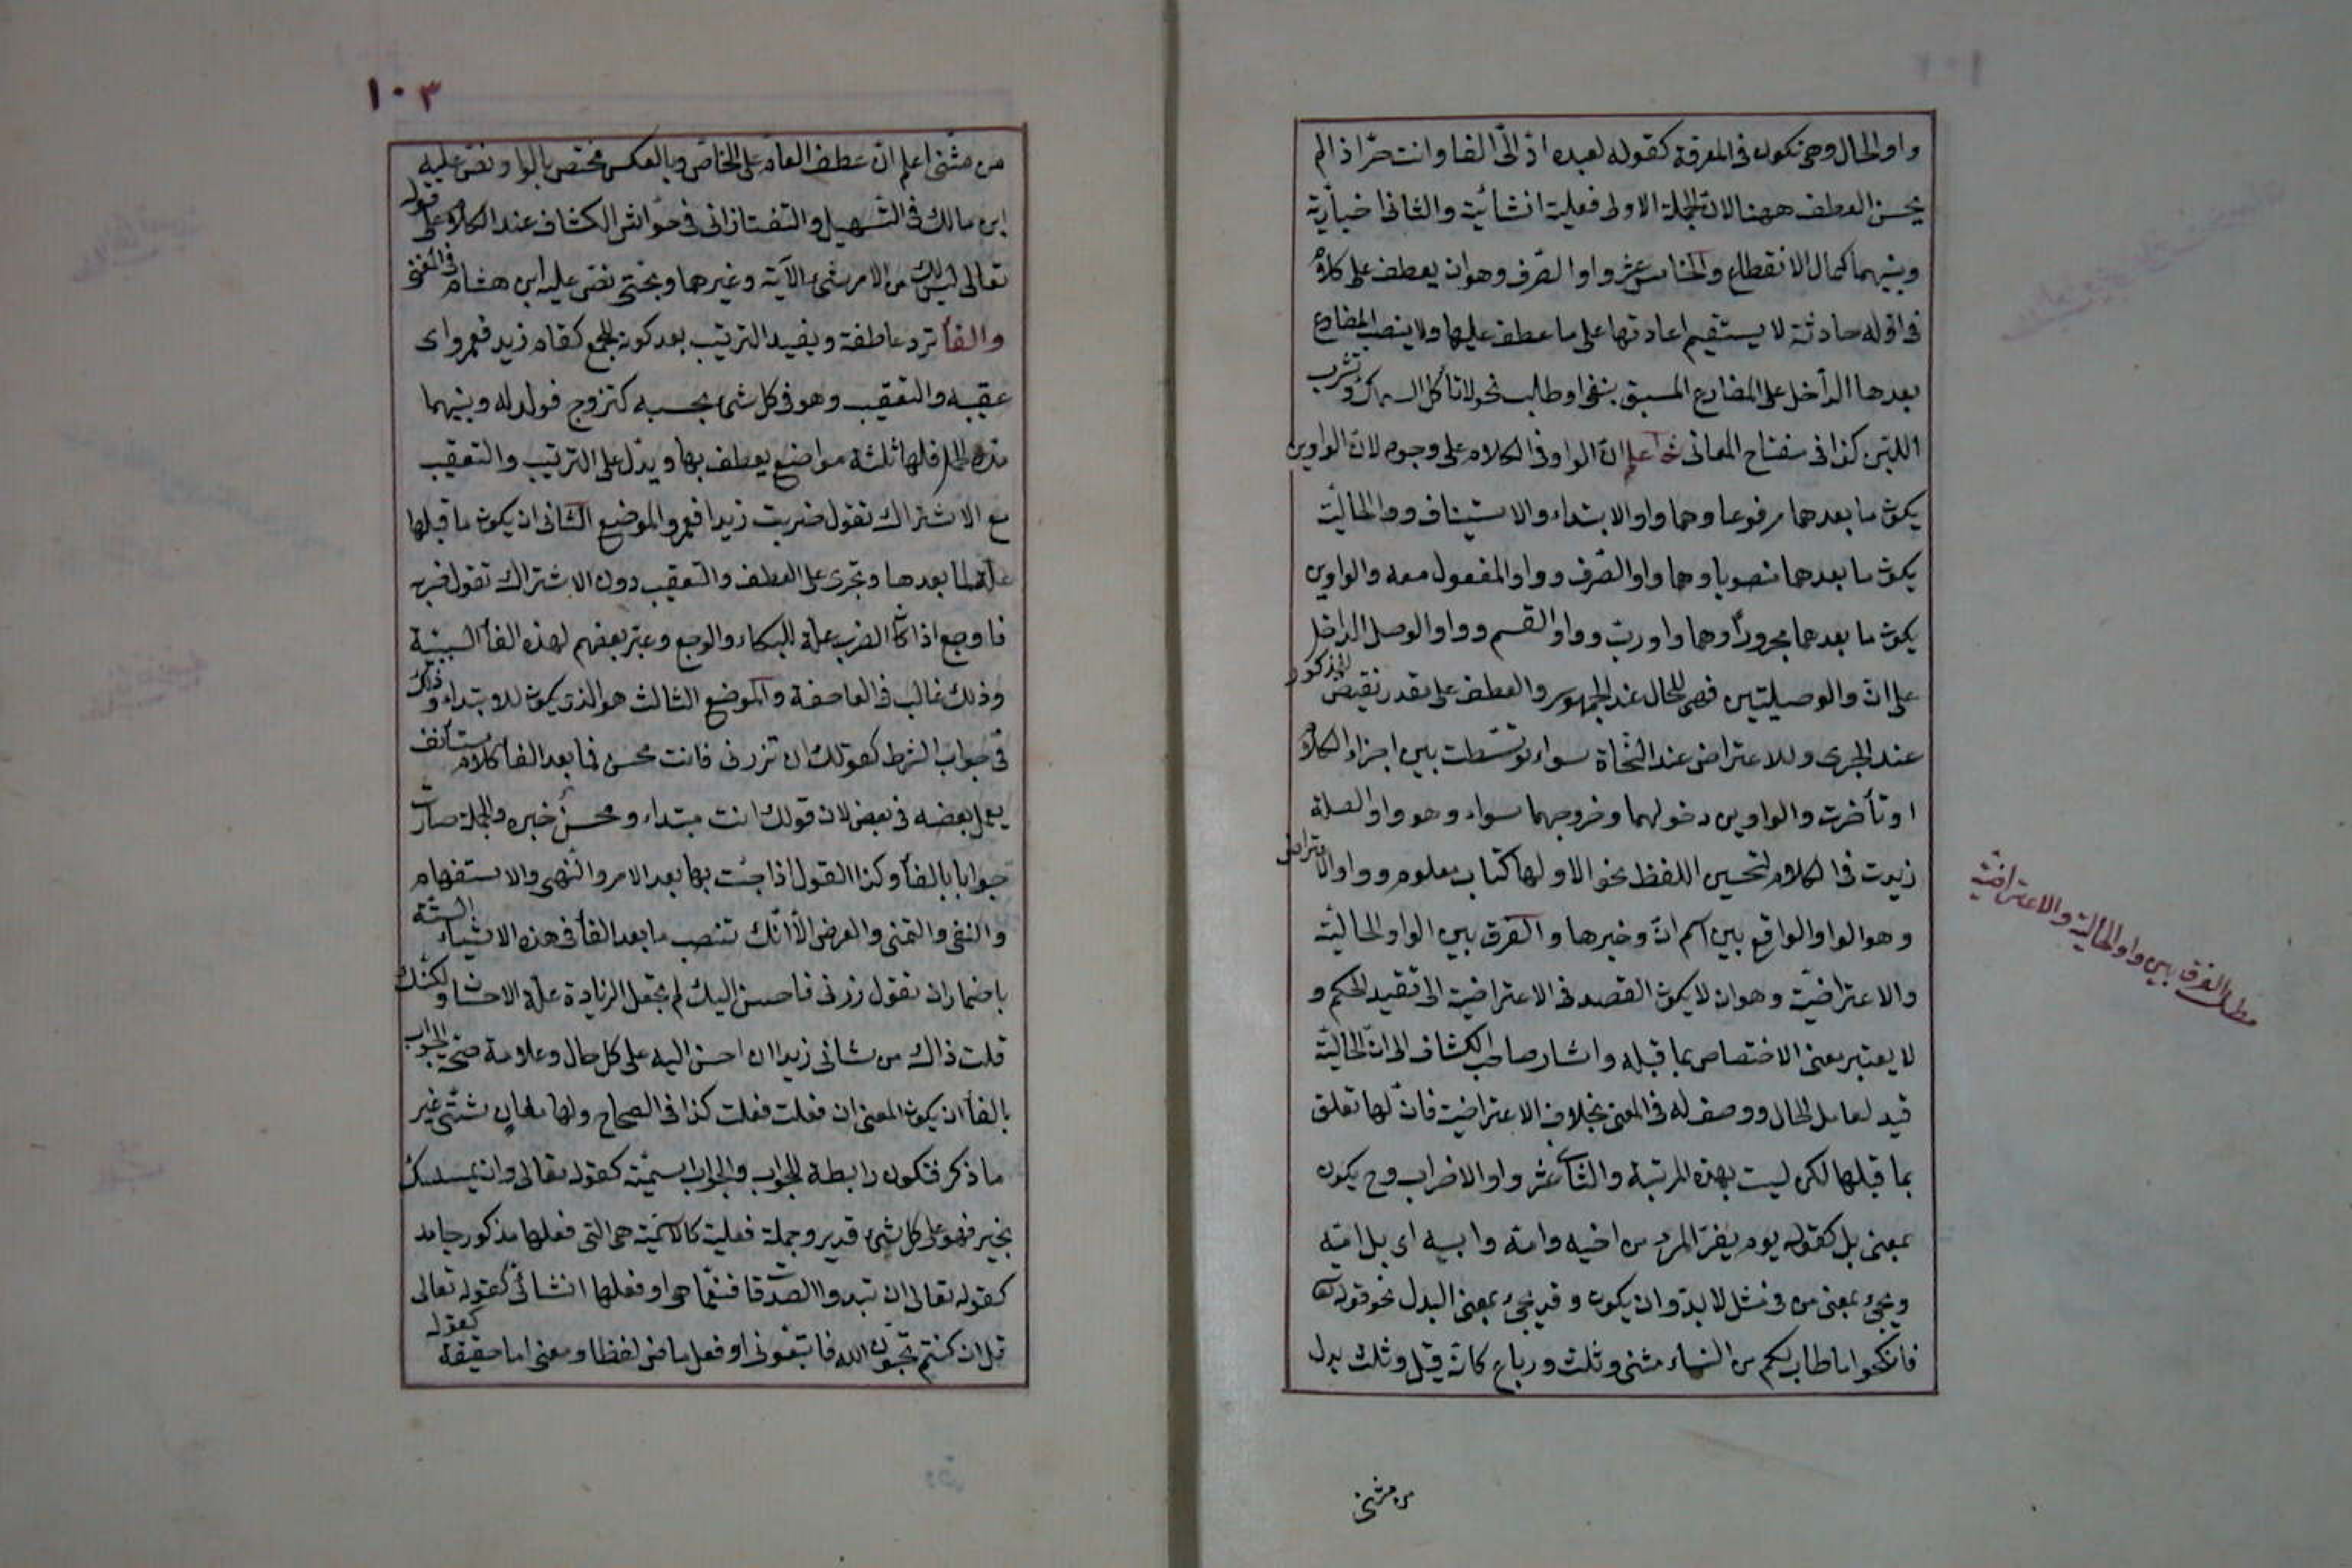 واو الحال وهى تكون فى المعرفة كقوله لعبده اذ الىّ الفا وانت حرّ اذ الم
يحسن العطف ههنا لان الجملة الاولى فعلية انشائية والثانى اخبارية
وبينهما كمال الانقطاع والخامس عشر واو الصرف وهو ان يعطف على كلام
فى اوله حادثة لا يستقيم اعادتها على ما عطف عليها ولا ينصب المضارع
بعدها الداخل على المضارع المسبق بنفى او طلب نحو لا تأكل السمك وتشرب
اللبن كذا فى مفتاح المعانى ثم اعلم ان الواو فى الكلام على وجوه لان الواوين
يكون ما بعدهما مرفوعا وهما واو الابتداء والاستيناف وواو الحالية
يكون ما بعدهما منصوبا وهما واو الصرف وواو المفعول معه والواوين
يكون ما بعدهما مجرورا وهما واو ربّ وواو القسم وواو الوصل الداخل
على ان والوصيلتين فهى للحال عند الجمهور والعطف على مقدر نقيض المذكور
عند الجزى وللاعتراض عند النحاة سواء توسّطت بين اجزاء الكلام
او تأخرت والواوين دخولهما وخروجهما سواء وهو واو الصلة
زيدت فى الكلام لتحسين اللفظ نحو الا ولها كتاب معلوم وواو الاعتراض
وهو الواو الواقع بين اسم انّ وخبرها والفرق بين الواو الحالية
والاعتراضيّة وهو ان لا يكون القصد فى الاعتراضيّة الى تقيد الحكم و
لا يعتبر معنى الاختصاص بما قبله واشار صاحب الكشاف الى ان الحاليّة
قيد لعامل الحال ووصف له فى المعنى بخلاف الاعتراضية فانّ لها تعلق
بما قبلها لكن ليست بهذه المرتبة والثامن عشر واو الاضراب وح يكون
بمعنى بل كقوله يوم يفرّ المرء من اخيه وامه وابيه اى بل امّه
ويجئ بمعنى من فى مثل لا بدّ وان يكون وقد يجئ بمعنى البدل نحو قوله تعا
فانكحوا ما طاب لكم من النساء مثنى وثلث ورباع كانه قيل وثلث بدل
من مثنى
مطلب الفرق بين واو الحالية والاعتراضيّة
١٠٣
من مثنى اعلم ان عطف العام على الخاص وبالعكس مختص بالواو ونصّ عليه
ابن مالك فى التسهيل والتفتازانى فى حواشى الكشاف عند الكلام على قوله
تعالى ليس لك من الامر شئ الآية وغيرها وبحتى نصّ عليه ابن هشام فى المغنى
والفأ ترد عاطفة ويفيد الترتيب بعد كونه للجمع كقام زيد فعمرو اى
عقيبه والتعقيب وهو فى كل شئ بحسبه كتزوج فولد له وبينهما
مدة الحمل فلها ثلثة مواضع يعطف بها ويدل على الترتيب والتعقيب
مع الاشتراك تقول ضربت زيدا فعمرو والموضع الثانى ان يكون ما قبلها
علة لما بعدها وتجرى على العطف والتعقيب دون الاشتراك تقول ضربه
فاوجع اذا كان الضرب علة للبكاء والوجع وعبّر بعضهم لهذه الفأ السببية
وذلك غالب فى العاصفة والموضع الثالث هو الذى يكون للابتداء وذلك
فى جواب الشرط كقولك ان تزرنى فانت محسن فما بعد الفأ كلام مستأنف
يعمل بعضه فى بعض لان قولك انت مبتداء ومحسن خبره والجملة صارت
جوابا بالفأ وكذا القول اذا جئت بها بعد الامر والنّهى والاستفهام
والنفى والتمنى والعرض الّا انّك تنصب ما بعد الفأ فى هذه الاشياء الستّة
باضمار ان تقول زرنى فاحسن اليك لم تجعل الزيادة علّة الاحسان ولكنّك
قلت ذاك من شانى زيدا ان احسن اليه على كل حال وعلامة صحّة الجواب
بالفأ ان يكون المعنى ان فعلت فعلت كذا فى الصحاح ولها معان شتّى غير
ما ذكر فتكون رابطة للجواب والجواب اسميّة كقوله تعالى وان يمسسك
بخير فهو على كل شئ قدير وجملة فعلية كالاسمية هى التى فعلها مذكور جامد
كقوله تعالى ان تبدوا الصدقات فنعمّا هى او فعلها انشائى كقوله تعالى
قل ان كنتم تحبّون الله فاتبعونى او فعل ماض لفظا ومعنى اما حقيقة كقوله